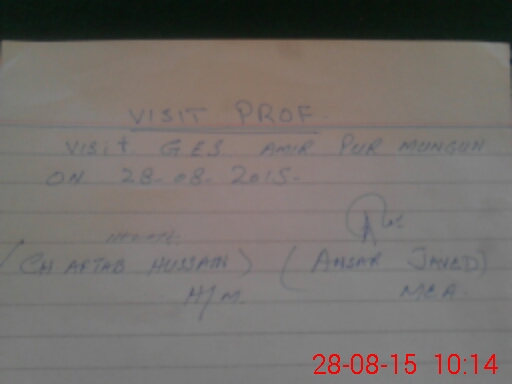 VISIT PROF.
VISIT GES AMIR PUR MUNGUN
ON 28-08-2015.
(CH AFTAB HUSSAIN) (ANSAR JAVED)
H/M. MEA.
28-08-15 10:14